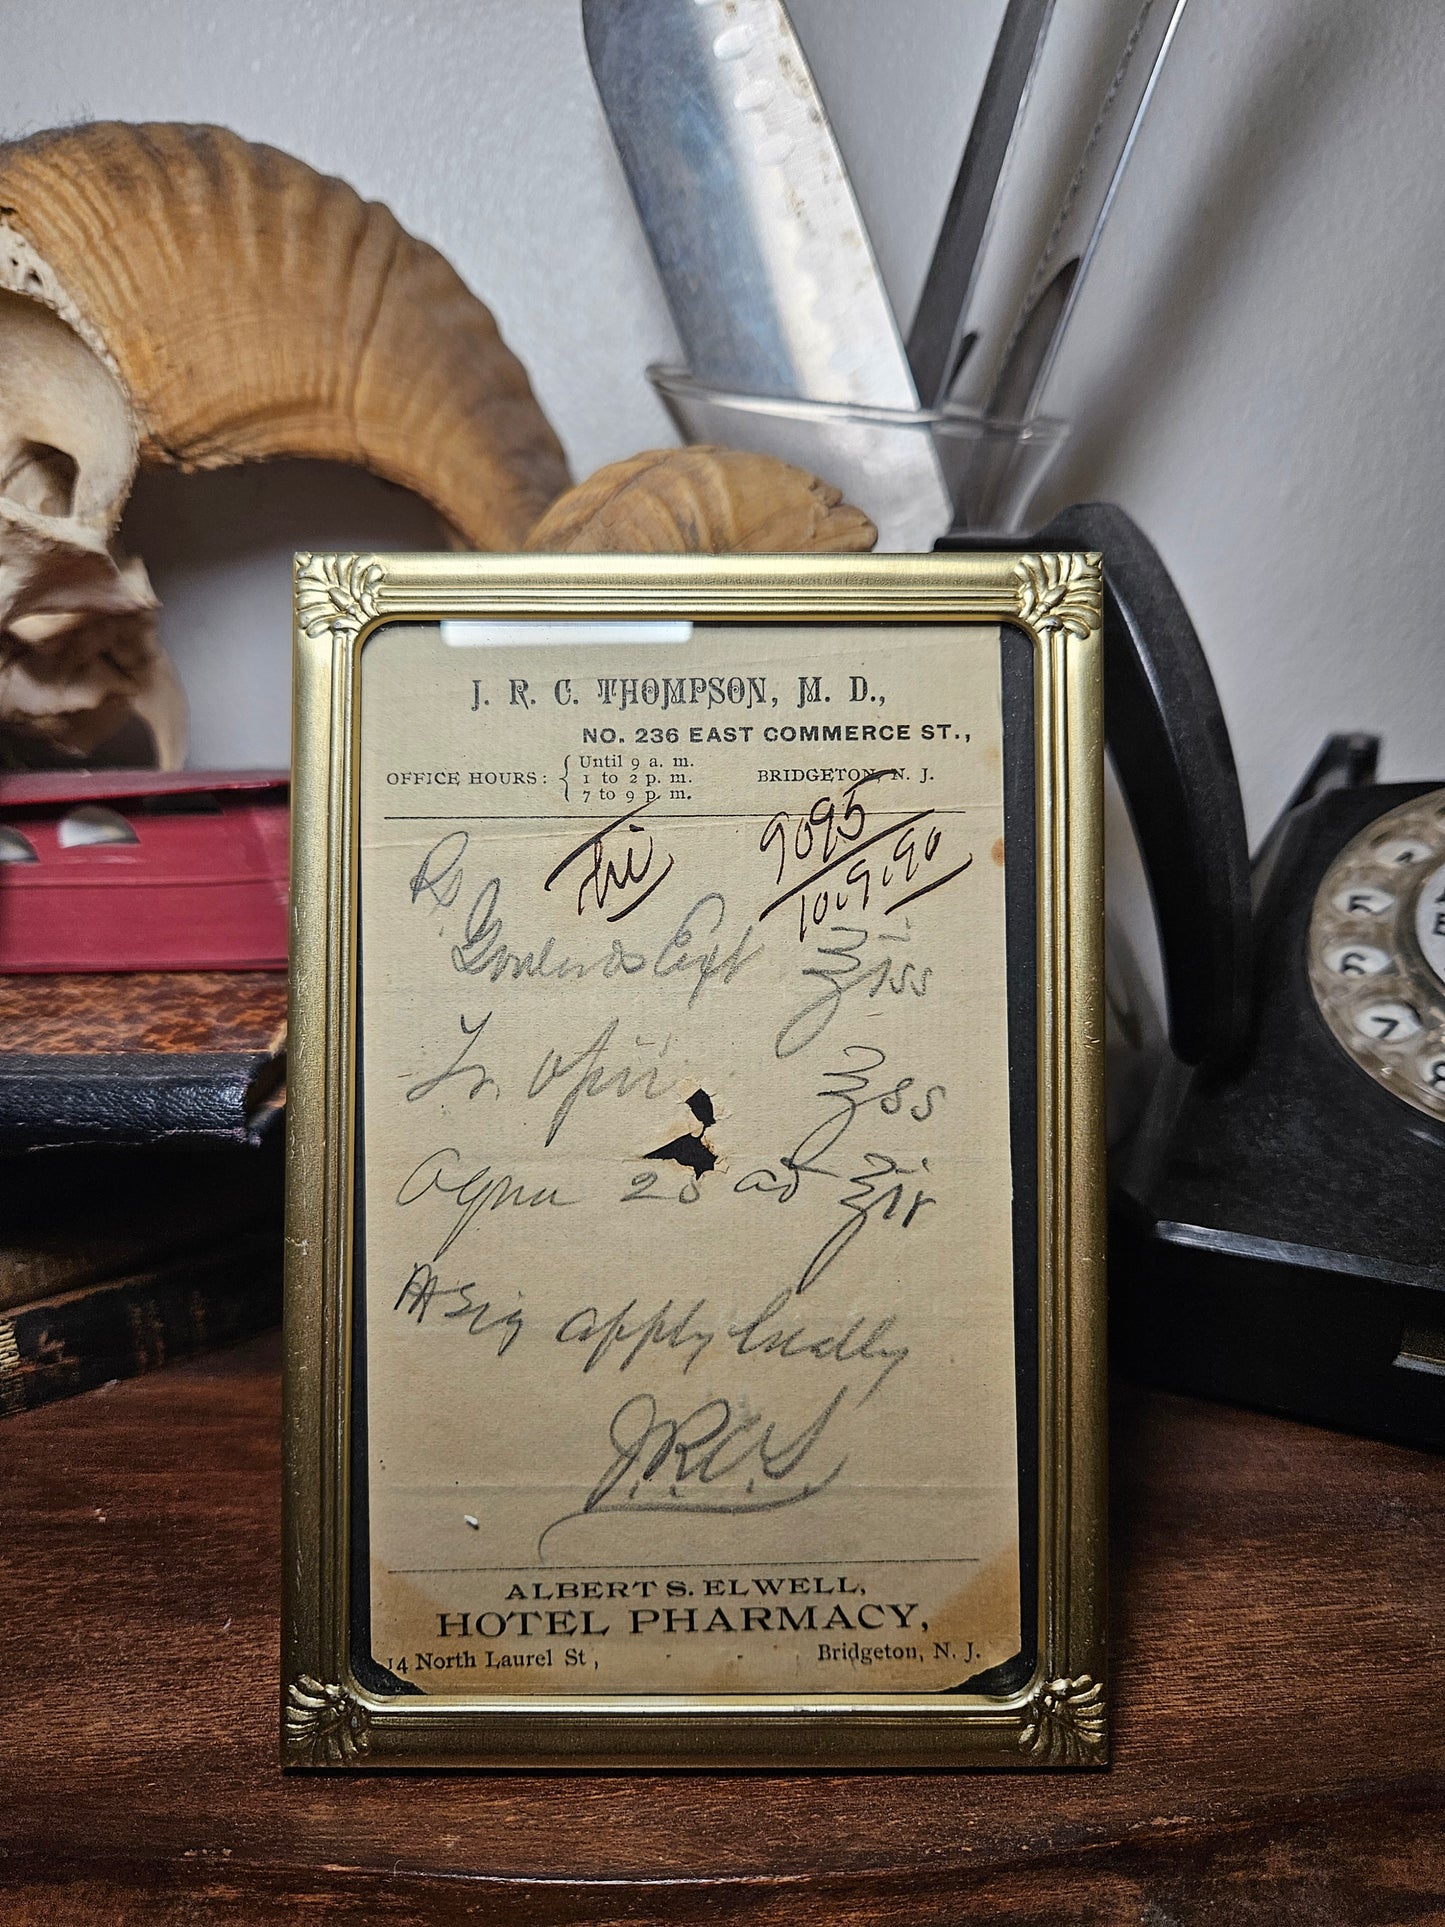 J. R. C. THOMPSON, M. D.,
NO. 236 EAST COMMERCE ST.,
OFFICE HOURS: { Until 9 a. m.
1 to 2 p. m.
7 to 9 p. m.
BRIDGETON, N. J.
9095
10.9.90
Rx
Goulards Ext ℥iss
Tr. Opii ℥ss
Aqua ad ℥iv
Sig apply
ALBERT S. ELWELL,
HOTEL PHARMACY,
14 North Laurel St, - - Bridgeton, N. J.